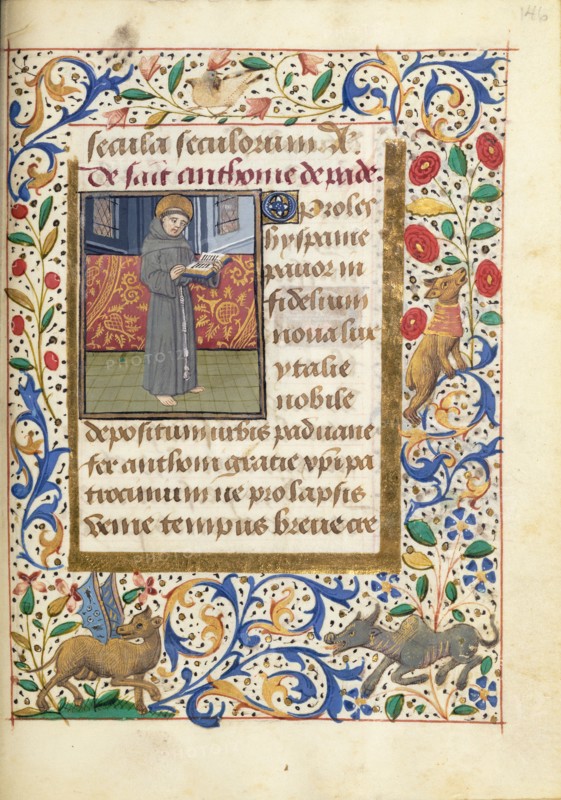 146
secula seculorum A
De saīt anthonie de pade.
O Proles
hyspanie
pauor in
fidelium
noua lux
ytalie
nobile
depositum urbis paduane
fer anthoni gracie xp̄i pa
trocinium ne prolapsis
venie tempus breue cre